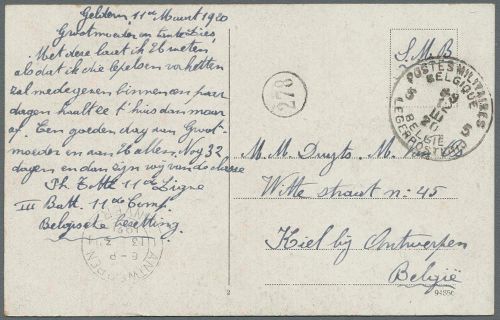 Geldern, 11de Maart 1920
Grootmoeder en
Met deze laat ik U weten
alsdat ik die lepelsen
zal medegenen binnen een paar
dagen haalt ze t'huis dan maar
op. Een goeden dag van Groot-
moeder en aan U allen. Nog 32
dagen en dan zijn wij van de classe
11de Ligne
III Batt. 11de Comp.
Belgische bezetting.
ANTWERPEN
6-P
13
278
S. M. B
POSTES MILITAIRES
BELGIQUE
5
5
BELGIE
LEGERPOSTERIJ
M. M.
Witte straat nº 45
Kiel bij Antwerpen
België
2